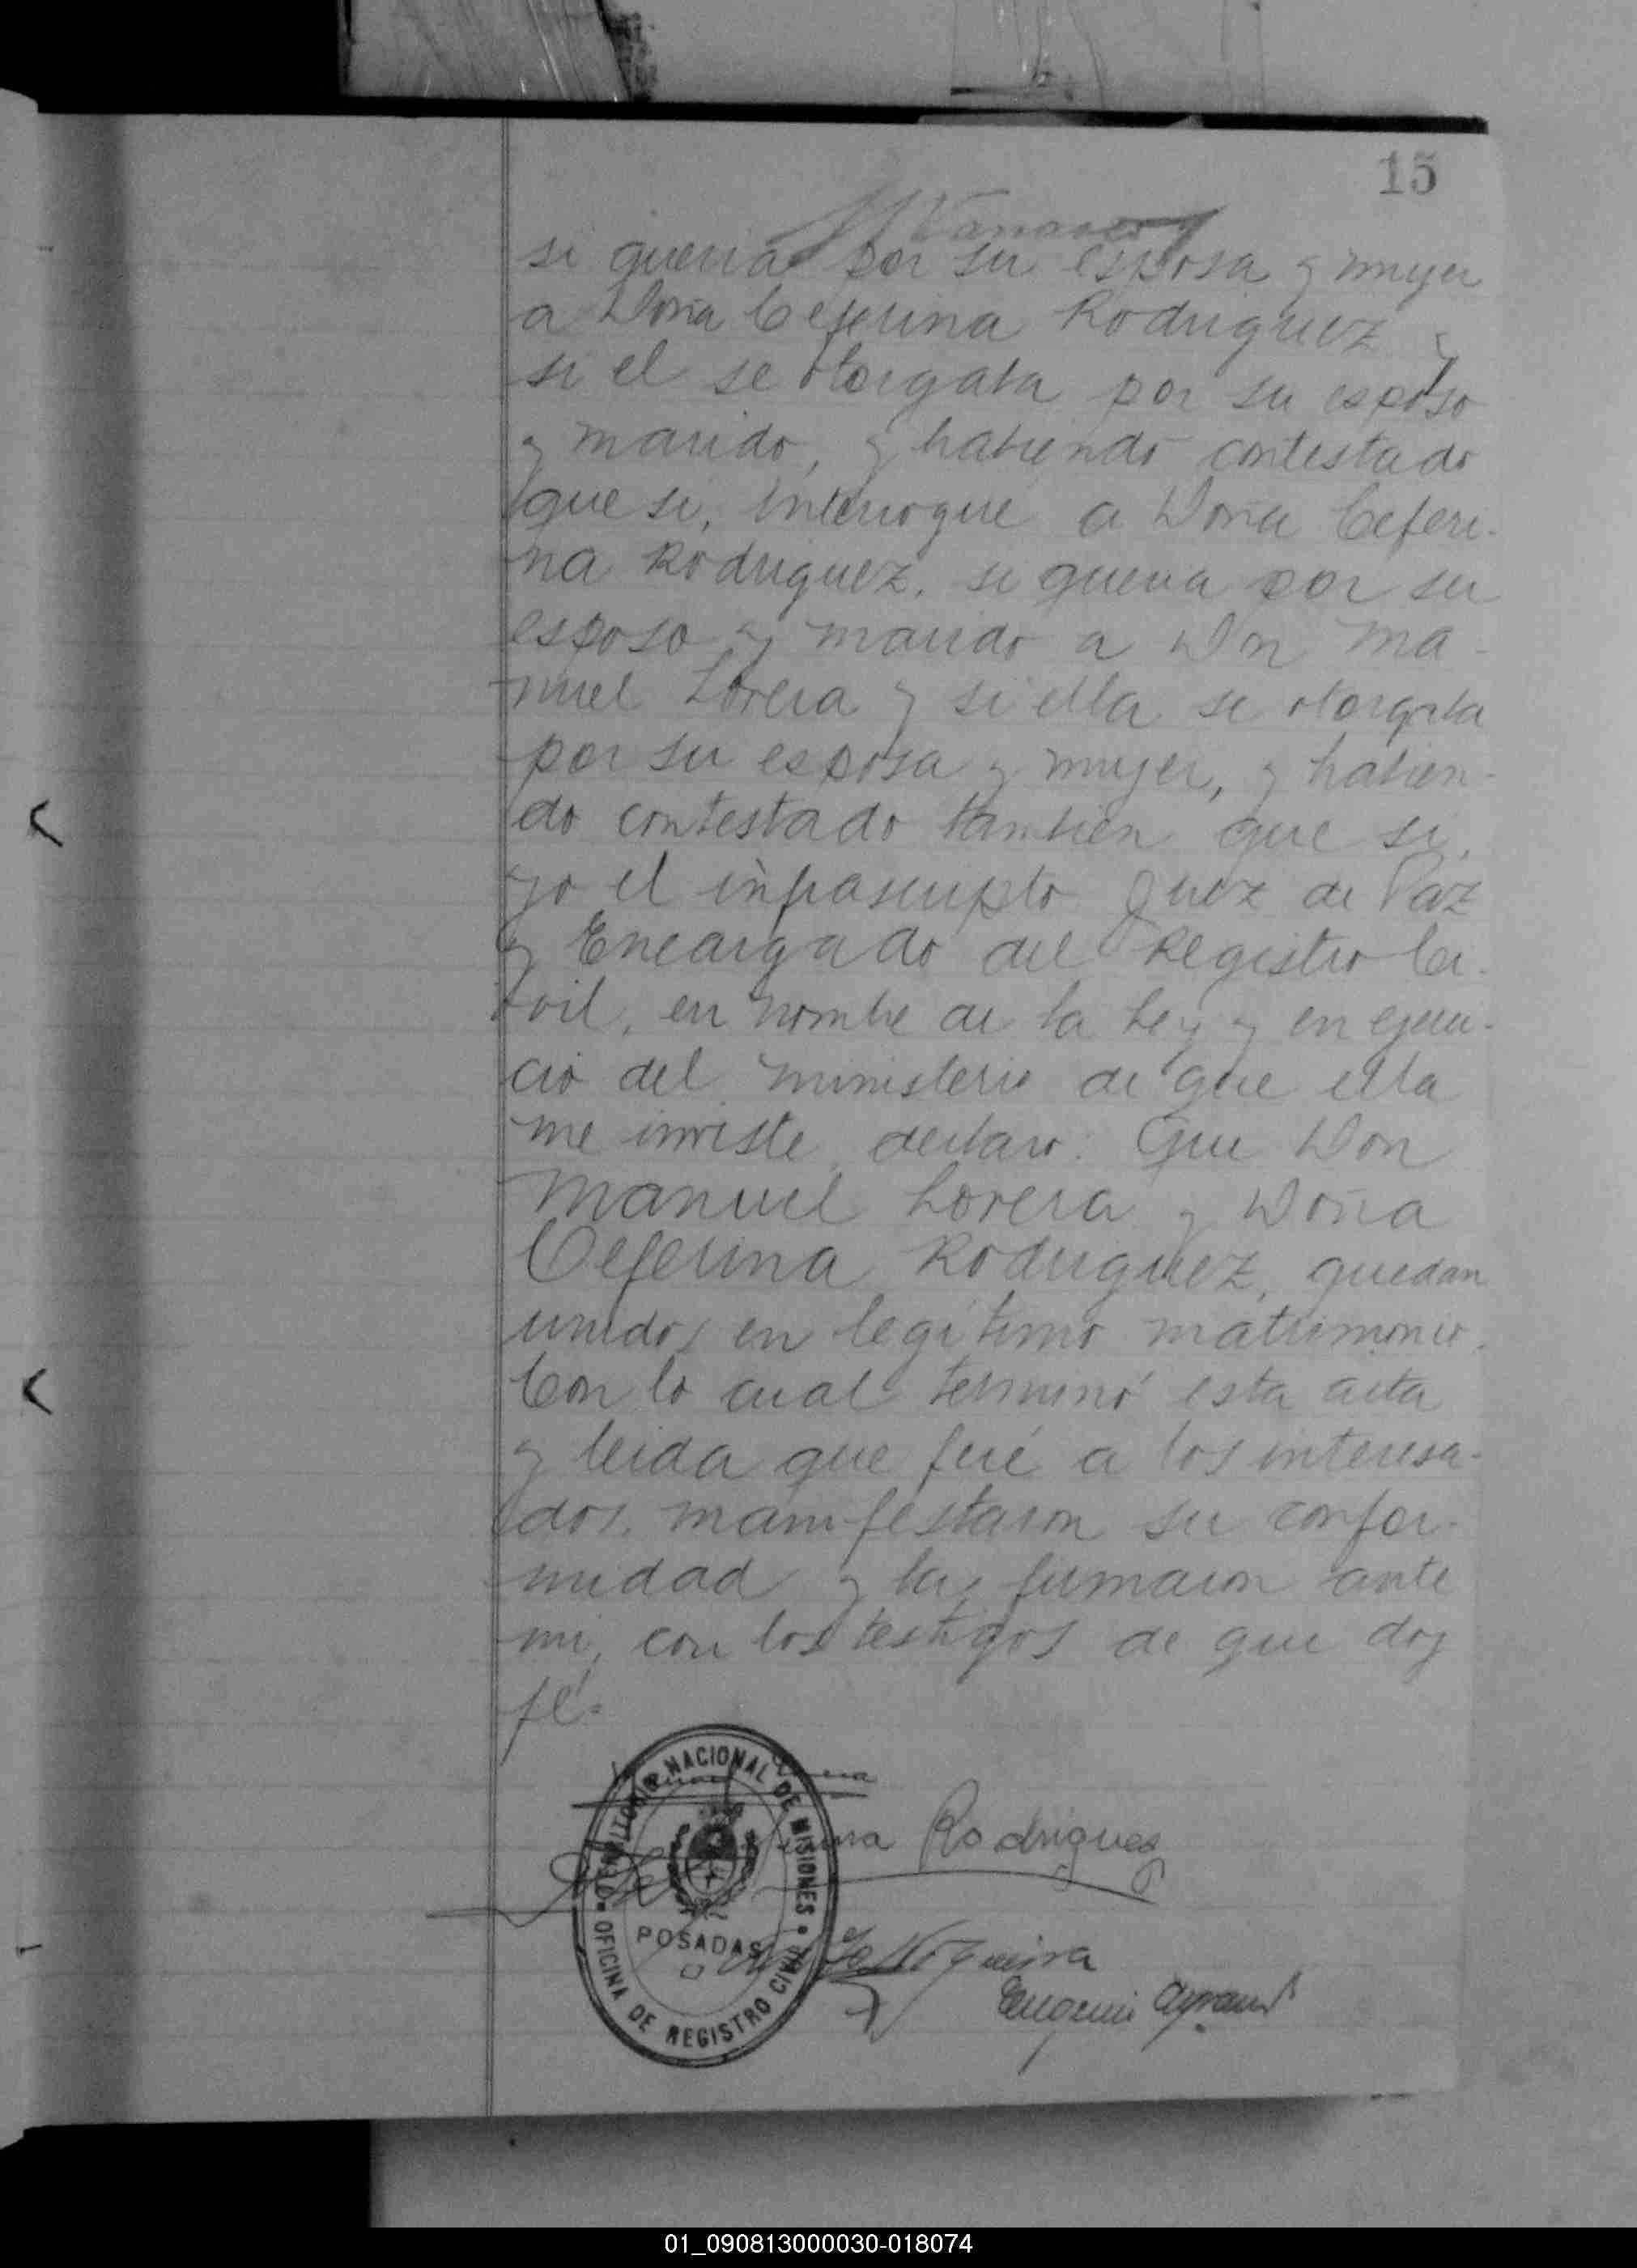 15
si queria por su esposa y mujer
a Doña Ceferina Rodriguez y
si el se otorgaba por su esposo
y marido, y habiendo contestado
que si, interrogué a Doña Ceferi-
na Rodriguez, si queria por su
esposo y marido a Don Ma-
nuel Lorera y si ella se otorgaba
por su esposa y mujer, y habien-
do contestado tambien que si,
yo el infrascripto Juez de Paz
y Encargado del Registro Ci-
vil, en nombre de la Ley y en ejerci-
cio del ministerio de que ella
me inviste declaro: Que Don
Manuel Lorera y Doña
Ceferina Rodriguez, quedan
unidos en legítimo matrimonio.
Con lo cual terminó esta acta
y leida que fué a los interesa-
dos, manifestaron su confor-
midad y la firmaron ante
mi, con los testigos de que doy
fé.
TERRITORIO NACIONAL DE MISIONES
POSADAS
OFICINA DE REGISTRO CIVIL
Rodrigues
Nogueira
Eugenio
01_090813000030-018074